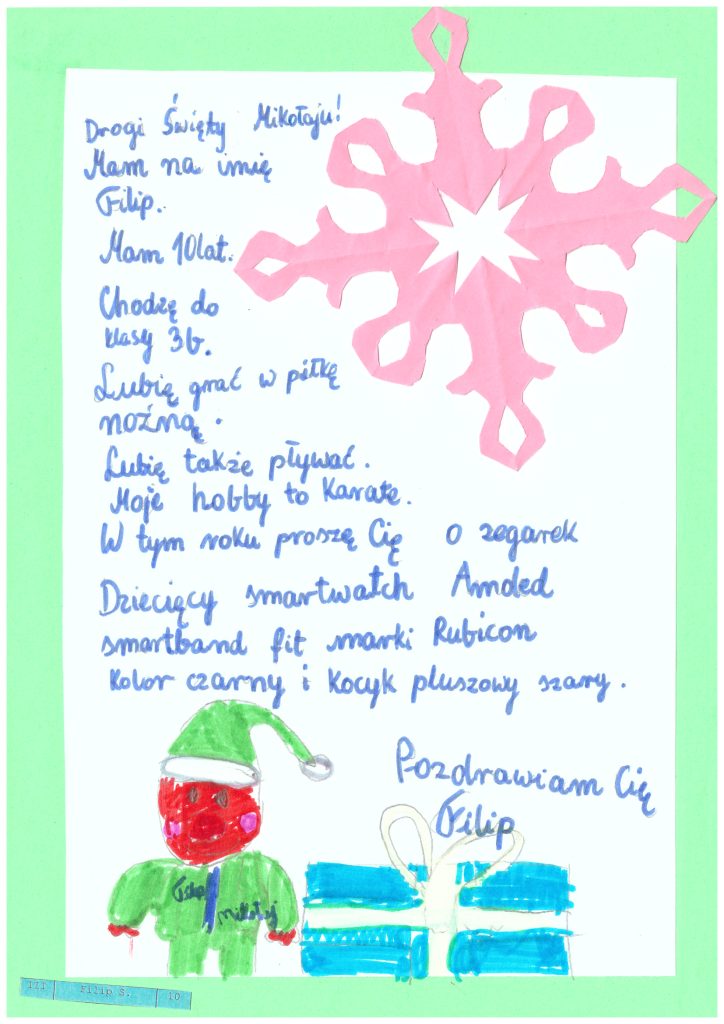 Drogi Święty Mikołaju!
Mam na imię
Filip.
Mam 10 lat.
Chodzę do
klasy 3b.
Lubię grać w piłkę
nożną.
Lubię także pływać.
Moje hobby to Karate.
W tym roku proszę Cię o zegarek
Dziecięcy smartwatch Amoled
smartband fit marki Rubicon
Kolor czarny i Kocyk pluszowy szary.
Pozdrawiam Cię
Filip
Mikołaj
III Filip S. 10